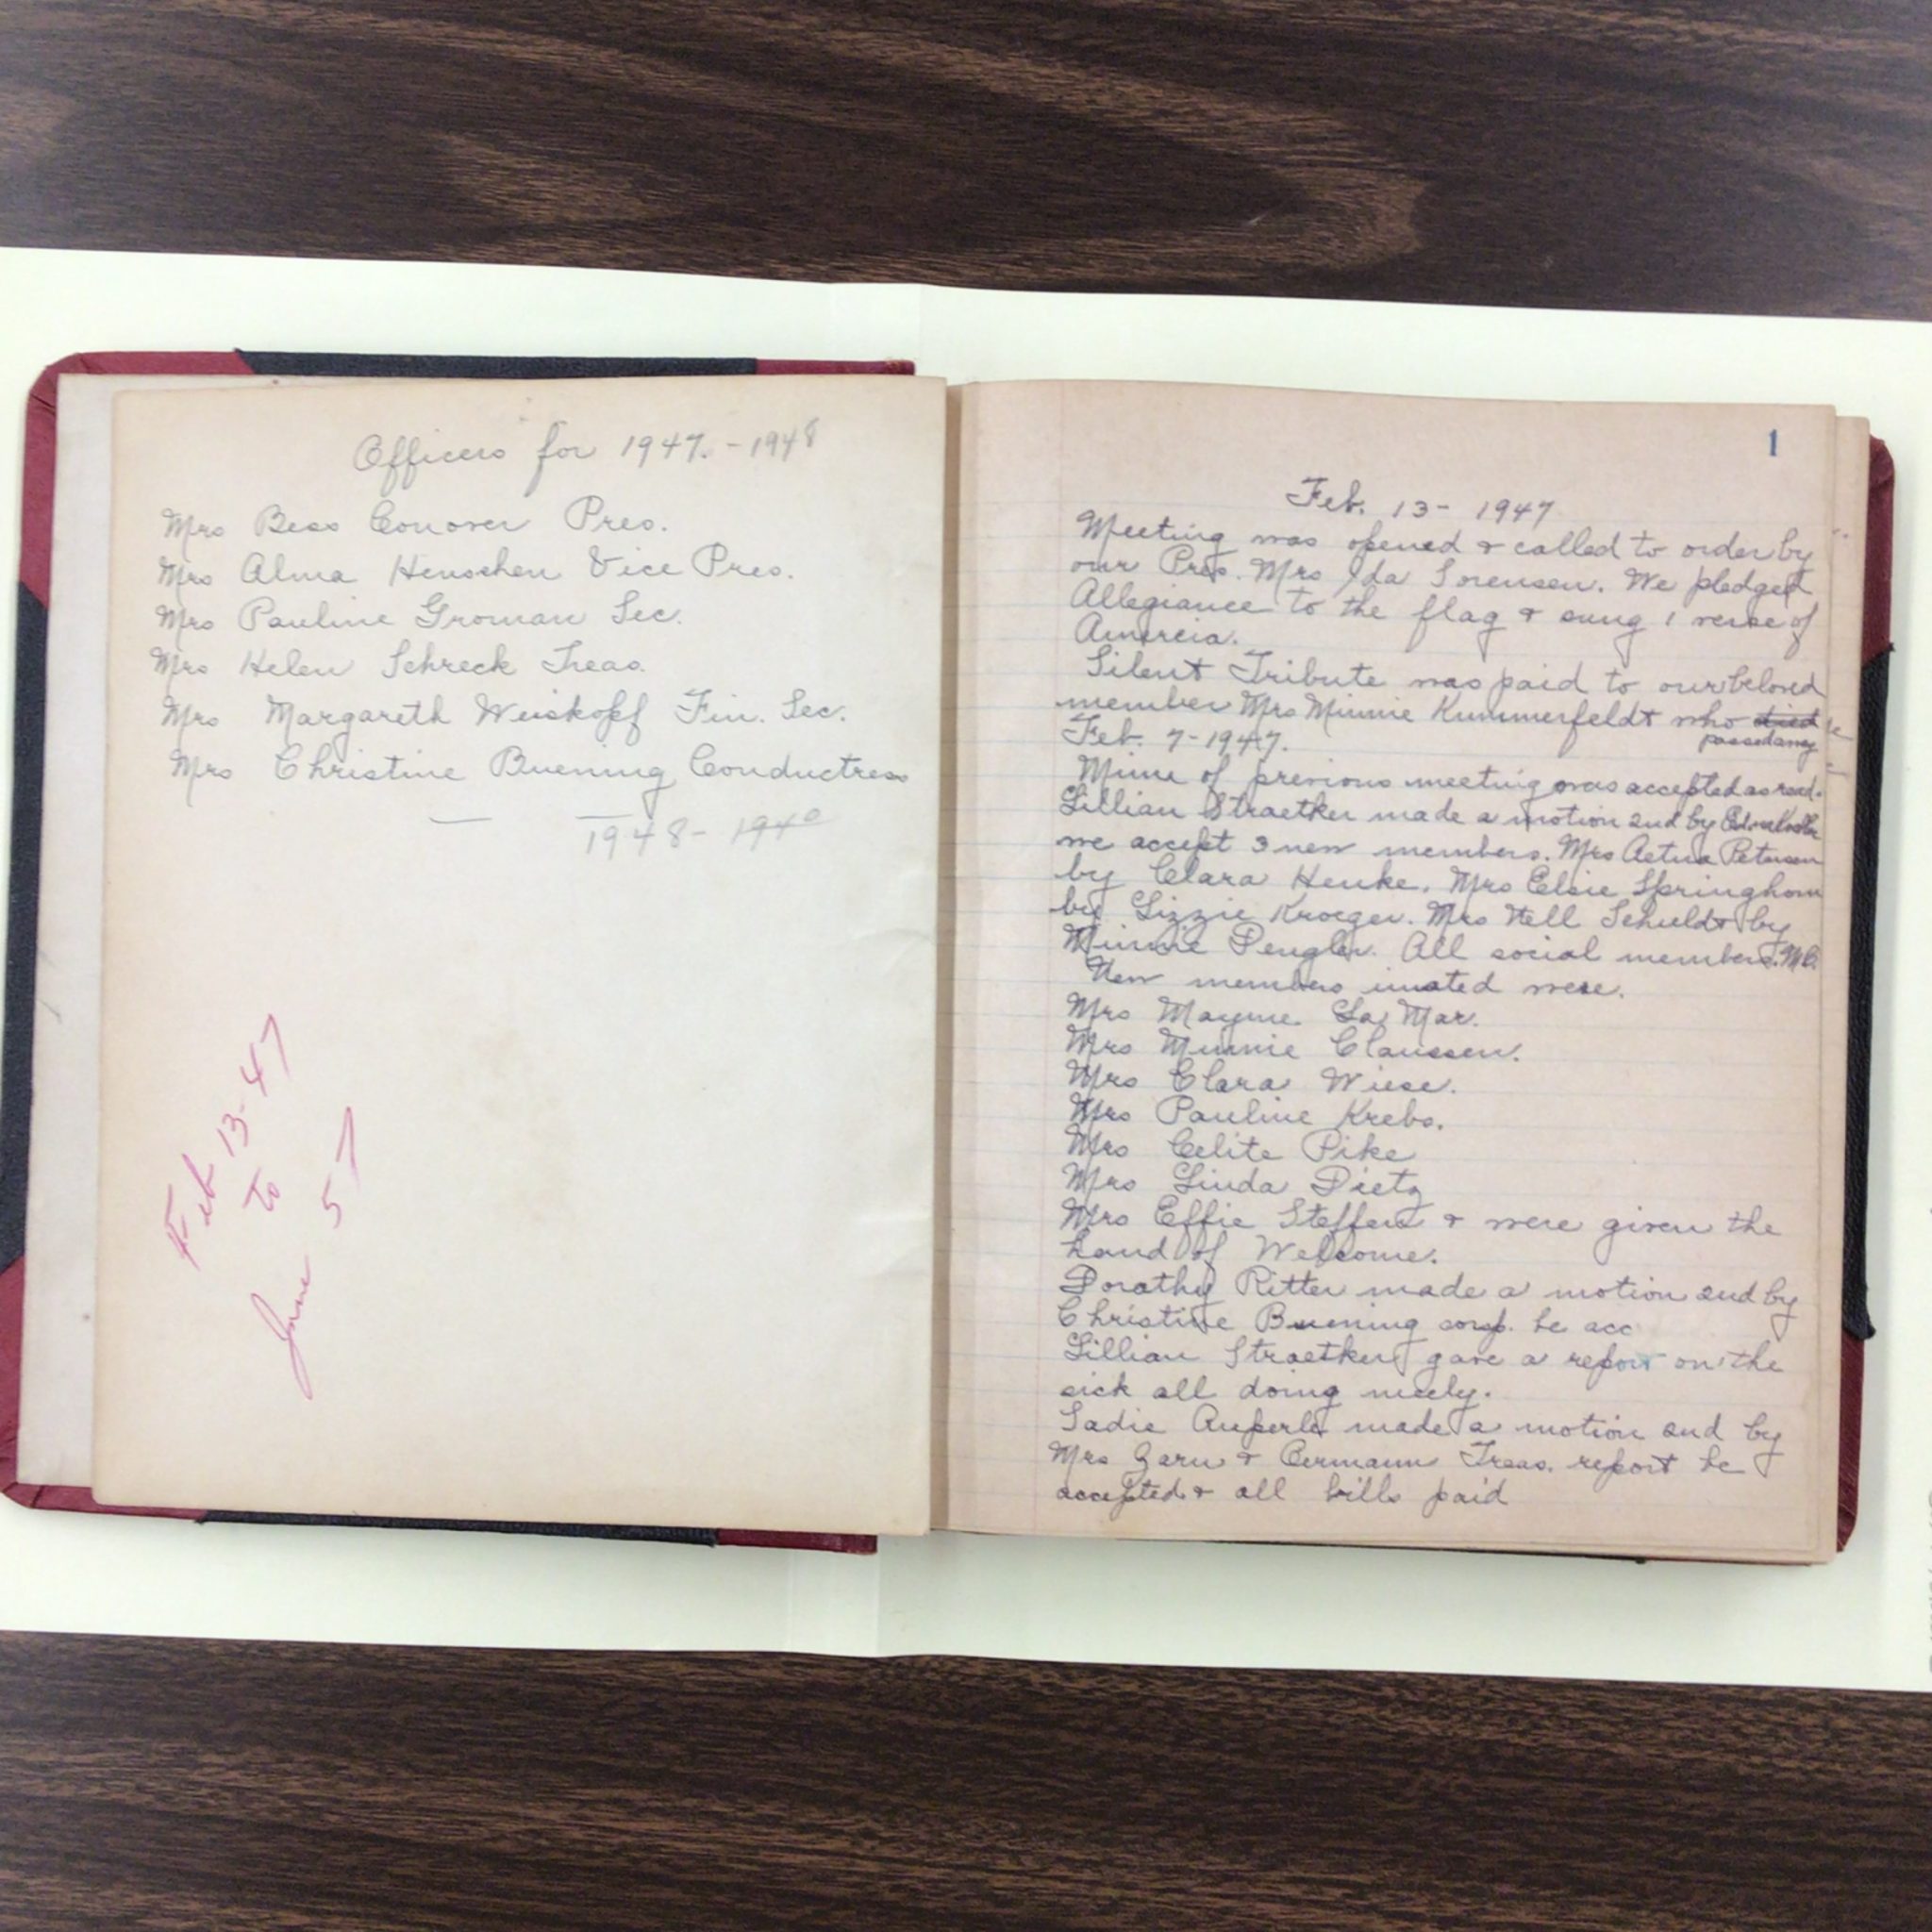 Officers for 1947. - 1948
Mrs Bess Conover Pres.
Mrs Alma Henschen Vice Pres.
Mrs Pauline Groman Sec.
Mrs Helen Schreck Treas.
Mrs Margareth Weiskopf Fin. Sec.
Mrs Christine Buening Conductress
1948 -
Feb 13-47
to
June 57
1
Feb. 13 - 1947
Meeting was opened & called to order by
our Pres. Mrs Ida Sorensen. We pledged
Allegiance to the flag & sung 1 verse of
Amercia.
Silent Tribute was paid to our beloved
member Mrs Minnie Kummerfeldt who died
passed away
Feb. 7 - 1947.
Minu of previous meeting was accepted as read.
Lillian Straetker made a motion 2nd by
we accept 3 new members. Mrs Aetna Petersen
by Clara Henke. Mrs Elsie Springhorn
by Lizzie Kroeger. Mrs Nell Schuldt by
Minnie Dengler. All social members. M.C.
New members were.
Mrs Mayme La Mar.
Mrs Minnie Claussen.
Mrs Clara Wiese.
Mrs Pauline Krebs.
Mrs Celite Pike
Mrs Linda Dietz
Mrs Effie Steffens & were given the
hand of Welcome.
Dorathy Ritter made a motion 2nd by
Christine Buening corsp. be acc
Lillian Straetker gave a report on the
sick all doing nicely.
Sadie Auperle made a motion 2nd by
Mrs Zarn & Oermann Treas. report be
accepted & all bills paid